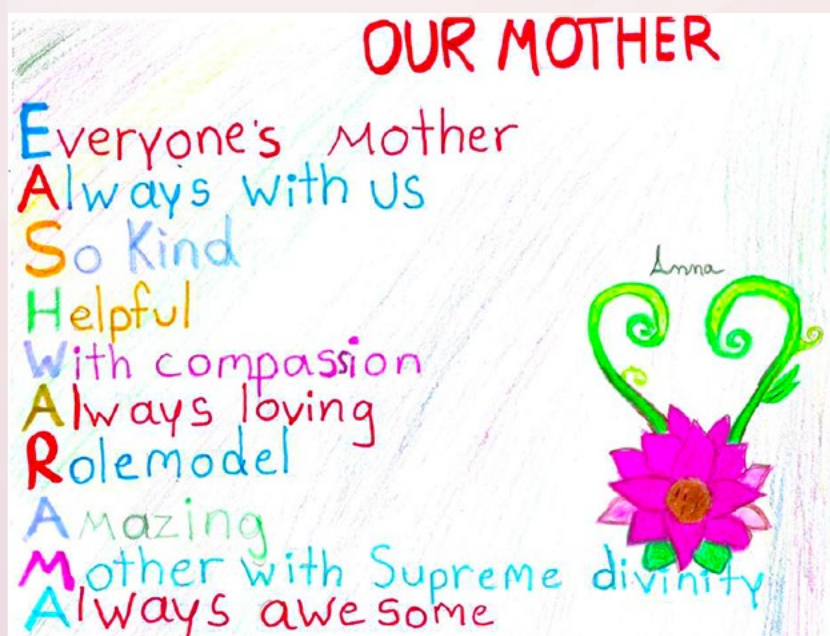 OUR MOTHER
Everyone's Mother
Always with us
So Kind
Helpful
With compassion
Always loving
Rolemodel
Amazing
Mother with Supreme divinity
Always awesome
Anna